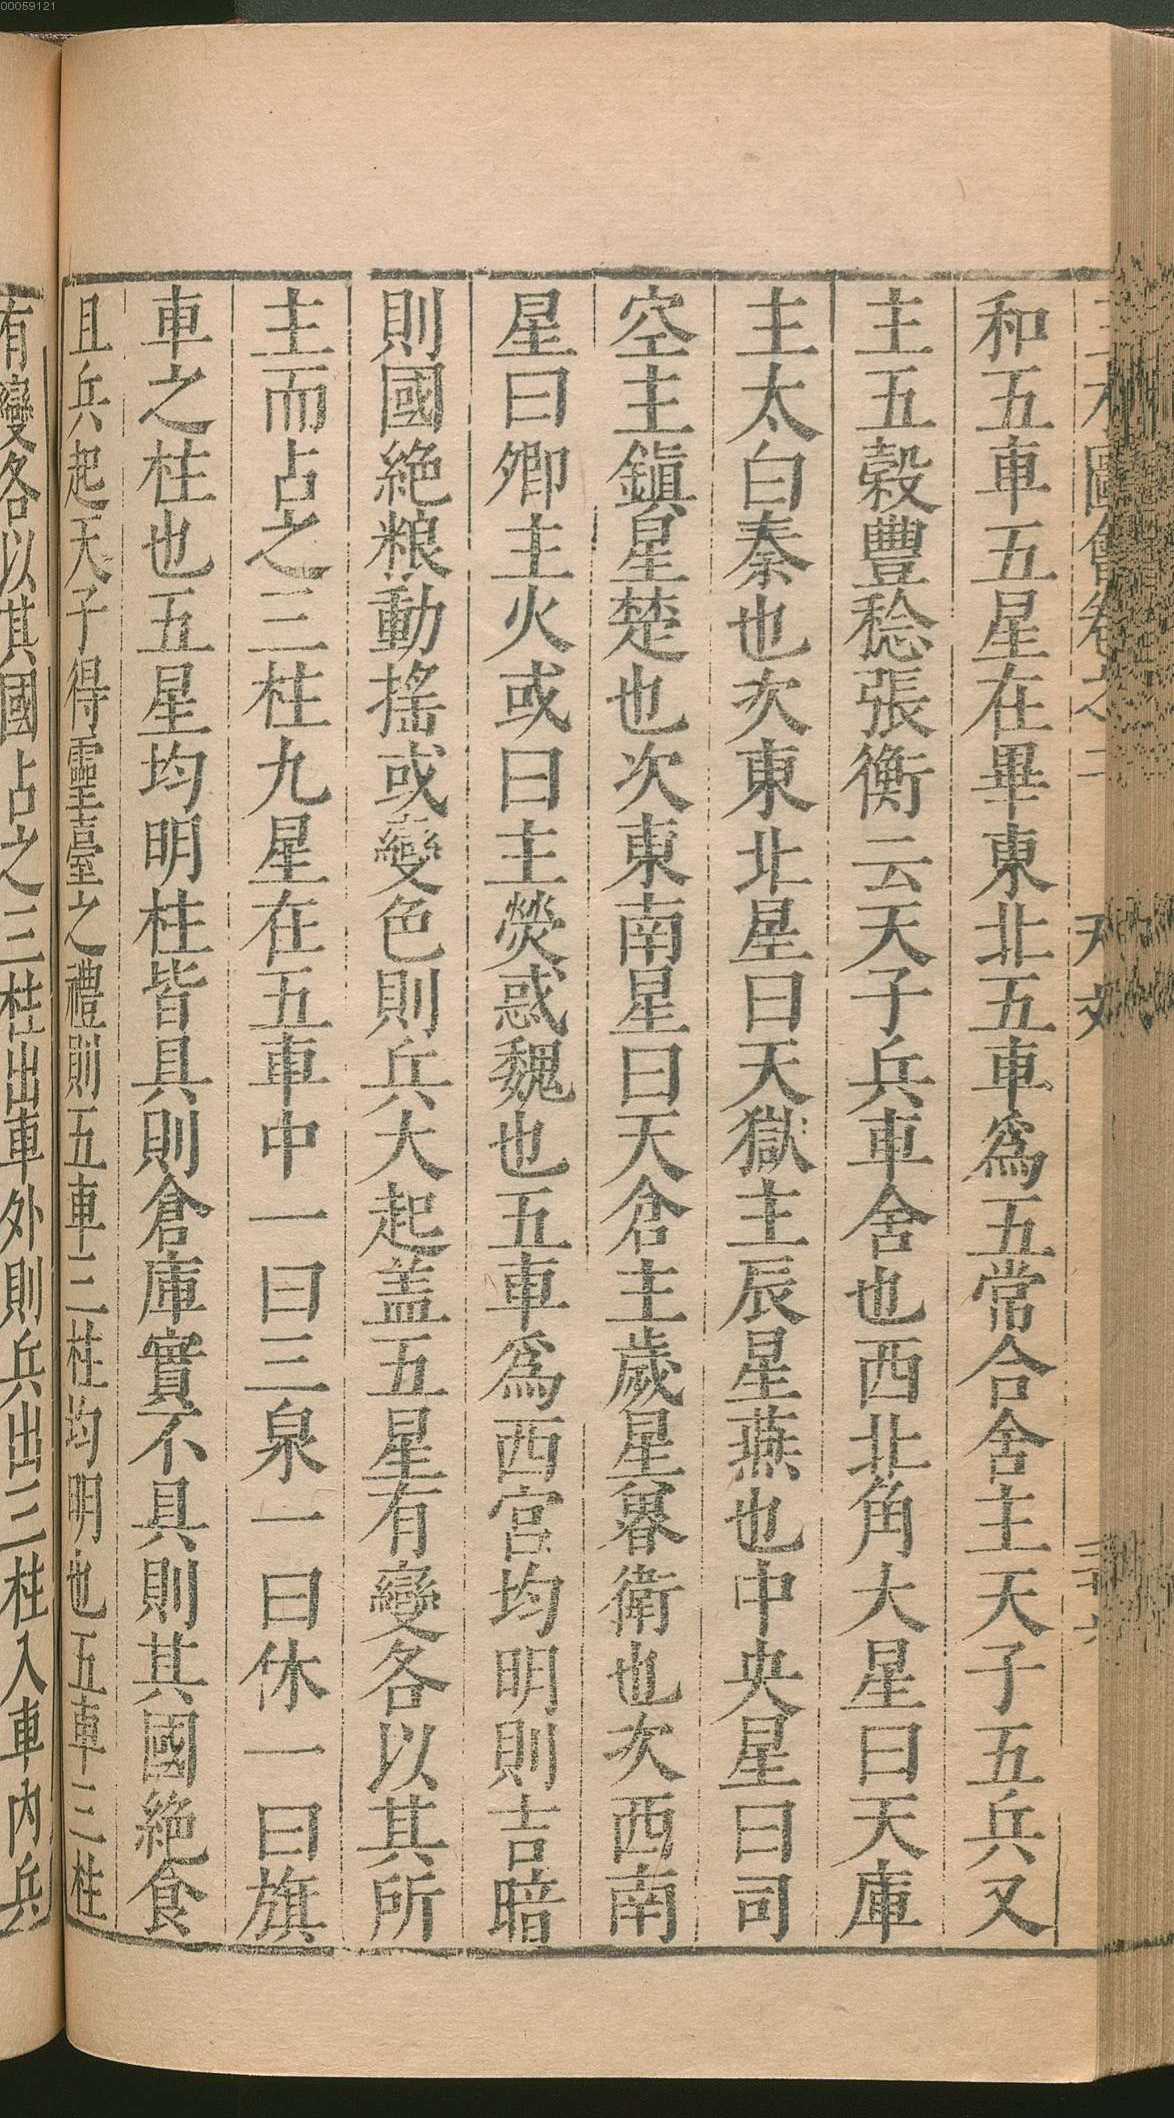 00059121
和五車五星在畢東北五車爲五常合舍主天子五兵又
主五穀豐稔張衡云天子兵車舍也西北角大星曰天庫
主太白秦也次東北星曰天獄主辰星燕也中央星曰司
空主鎭星楚也次東南星曰天倉主歲星魯衛也次西南
星曰卿主火或曰主熒惑魏也五車爲西宮均明則吉暗
則國絶粮動搖或變色則兵大起盖五星有變各以其所
主而占之三柱九星在五車中一曰三泉一曰休一曰旗
車之柱也五星均明柱皆具則倉庫實不具則其國絶食
且兵起天子得靈臺之禮則五車三柱均明也五車三柱
有變各以其國占之三柱出車外則兵出三柱入車內兵